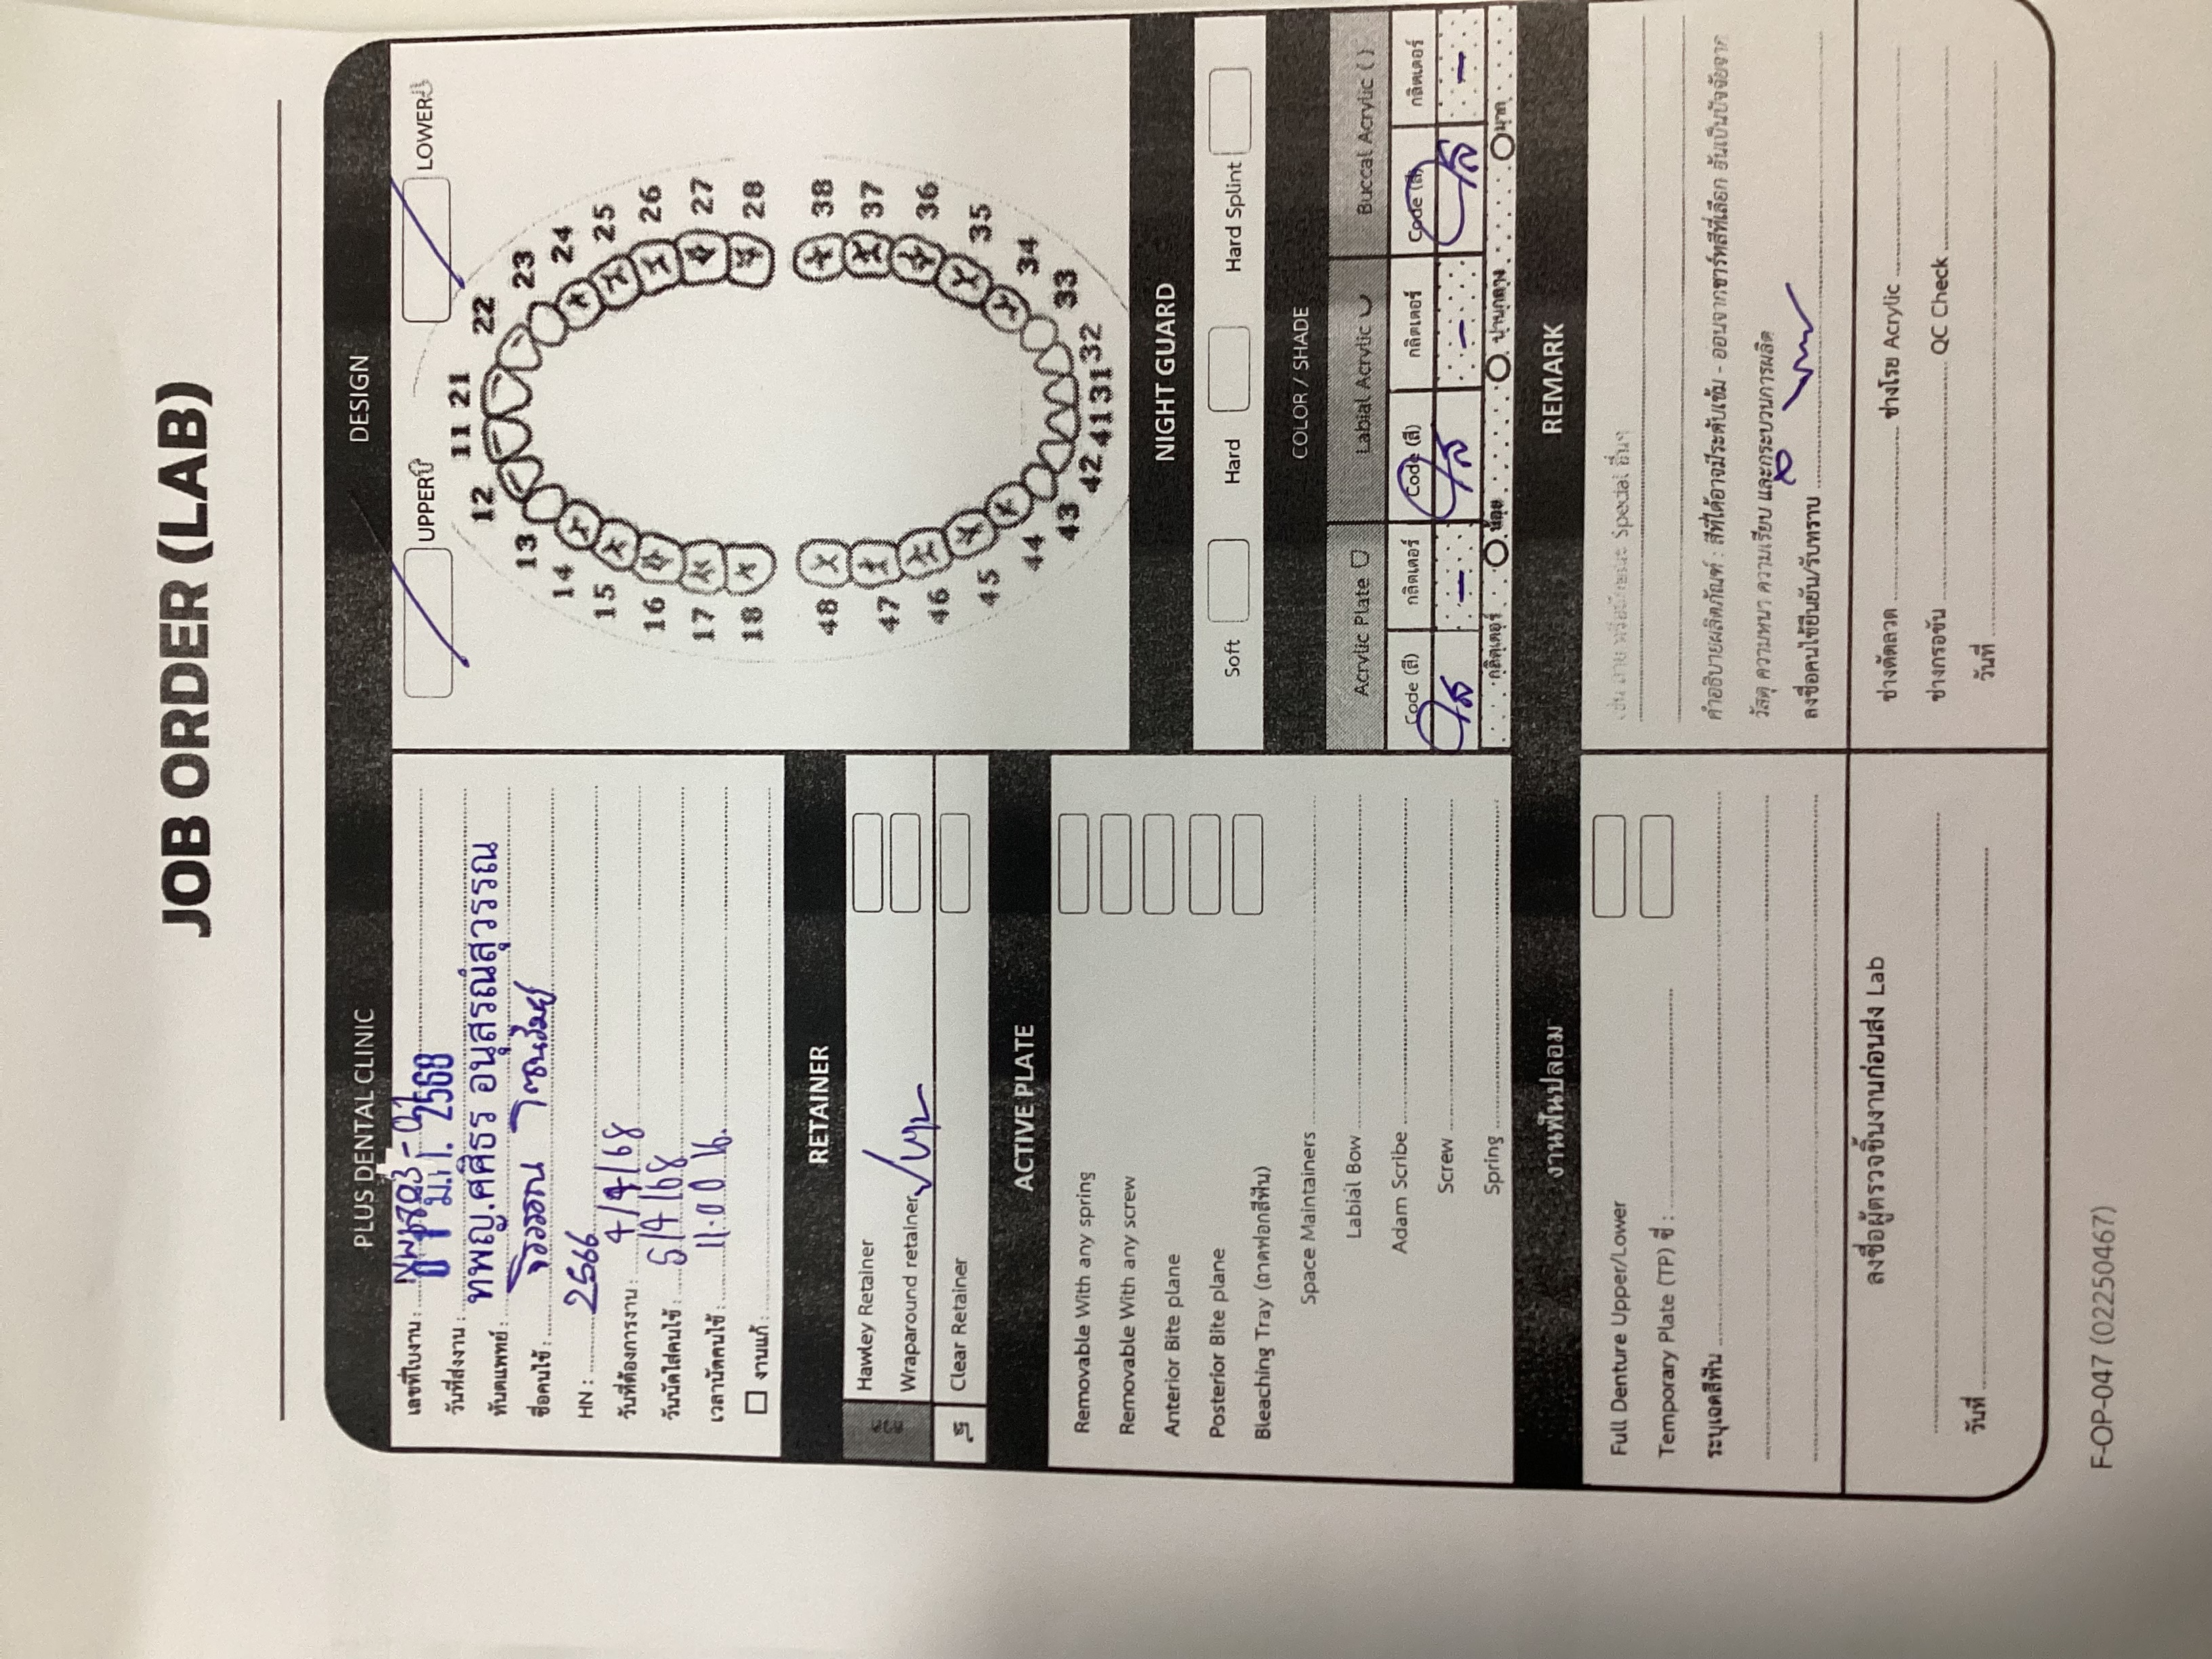 JOB ORDER (LAB)
PLUS DENTAL CLINIC
เลขที่ใบงาน :
วันที่ส่งงาน : 2568
ทันตแพทย์ : ทพญ.ศศิธร อนุสรณ์สุวรรณ
ชื่อคนไข้ : จิรวรรณ
HN : 2566
วันที่ต้องการงาน : 4/4/68
วันนัดใส่คนไข้ : 5/4/68
เวลานัดคนไข้ : 11.00 น.
งานแก้ :
RETAINER
ลวด
Hawley Retainer
Wraparound retainer
ใส
Clear Retainer
ACTIVE PLATE
Removable With any spring
Removable With any screw
Anterior Bite plane
Posterior Bite plane
Bleaching Tray (ถาดฟอกสีฟัน)
Space Maintainers
Labial Bow
Adam Scribe
Screw
Spring
งานฟันปลอม
Full Denture Upper/Lower
Temporary Plate (TP) ซี่ :
ระบุเฉดสีฟัน
ลงชื่อผู้ตรวจชิ้นงานก่อนส่ง Lab
วันที่
DESIGN
UPPER LOWER
11 21
12 22
13 23
14 24
15 25
16 26
17 27
18 28
48 38
47 37
46 36
45 35
44 34
43 33
42 41 31 32
NIGHT GUARD
Soft Hard Hard Splint
COLOR / SHADE
Acrylic Plate Labial Acrylic Buccal Acrylic ( )
Code (สี) กลิตเตอร์ Code (สี) กลิตเตอร์ Code (สี) กลิตเตอร์
ใส - ใส - ใส -
กลิตเตอร์ น้อย ปานกลาง มาก
REMARK
เช่น ลาย หรือลักษณะ Special อื่นๆ
คำอธิบายผลิตภัณฑ์ : สีที่ได้อาจมีระดับเข้ม - ออนจากชาร์ทสีที่เลือก อันเป็นปัจจัยจาก
วัสดุ ความหนา ความเรียบ และกระบวนการผลิต
ลงชื่อคนไข้ยืนยัน/รับทราบ
ช่างดัดลวด ช่างโรย Acrylic
ช่างกรอขัน QC Check
วันที่
F-OP-047 (02250467)